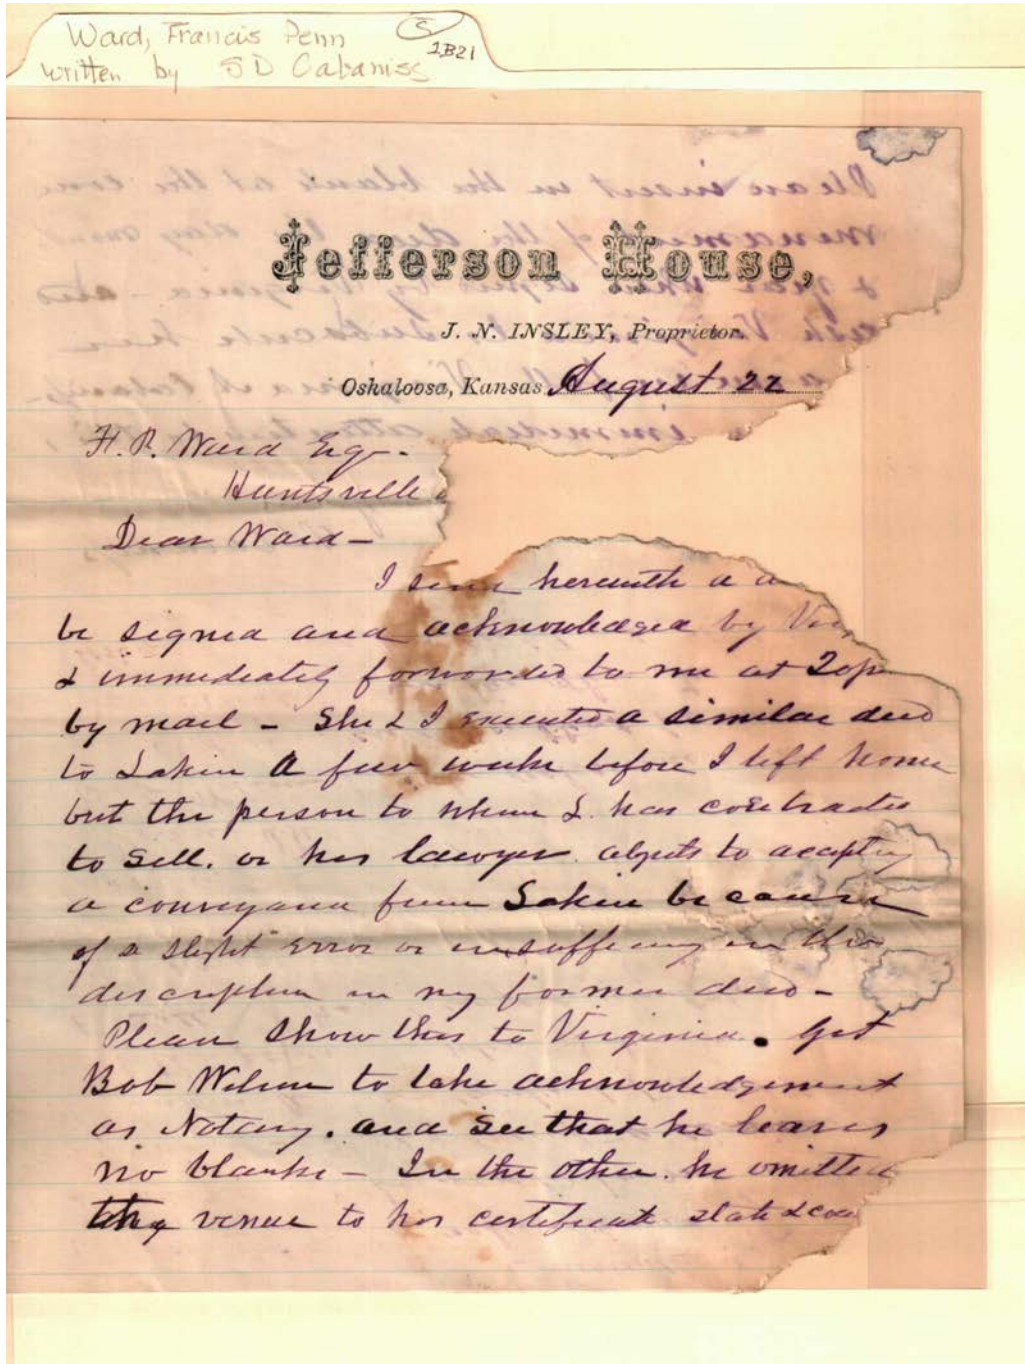 Ward, Francis Penn S
2B21
written by S D Cabaniss
Jefferson House,
J. N. INSLEY, Proprietor.
Oskaloosa, Kansas August 22
F. P. Ward Esq.
Huntsville
Dear Ward—
I send herewith a
be signed and acknowledged by
& immediately forwarded to me at Top
by mail – She & I executed a similar deed
to Lakin a few weeks before I left home
but the person to whom L. has contracted
to sell. or his lawyer. objects to accepting
a conveyance from Lakin because
of a slight error or insufficiency in the
description in my former deed –
Please show this to Virginia. Get
Bob Wilson to take acknowledgement
as Notary. and see that he leaves
no blanks – In the other. he omitted
the venue to his certificate state & cou